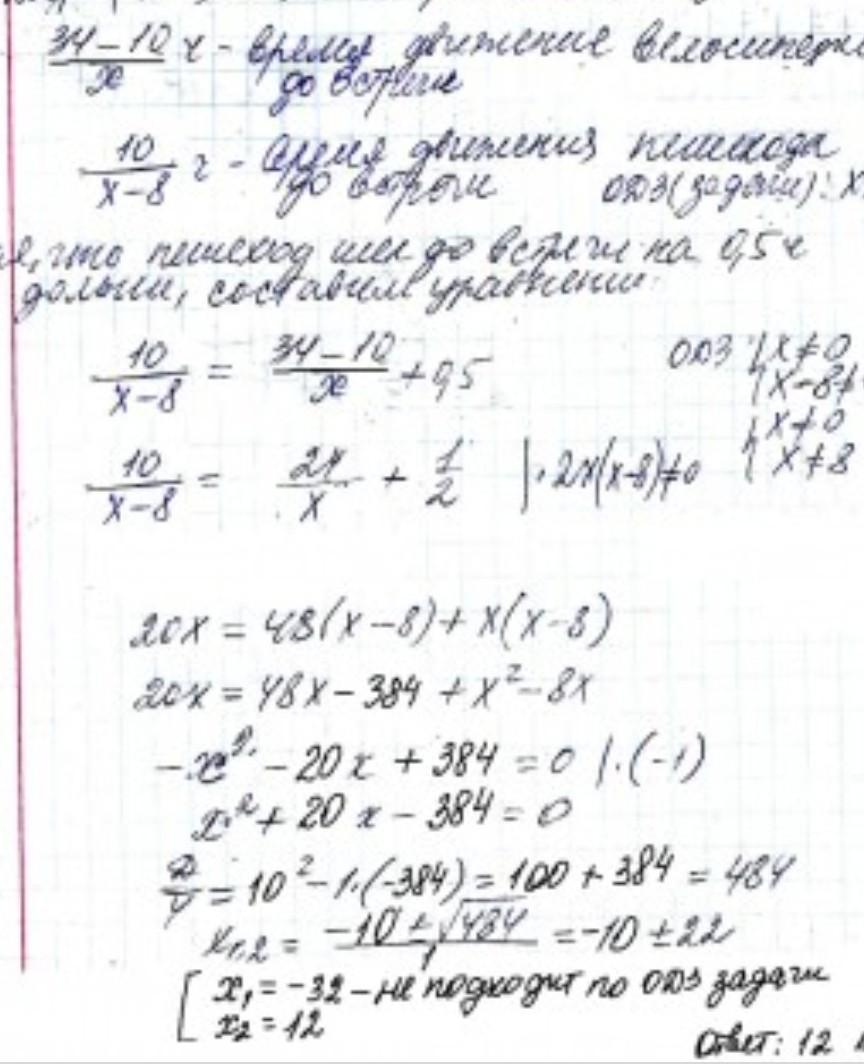 34-10/x ч - время движение
до встречи
10/x-8 ч - время движения пешехода
до встречи ОДЗ(задачи): x
что пешеход шел до встречи на 0,5 ч
составим уравнение:
10/x-8 = 34-10/x + 0,5 ОДЗ { x≠0
{ x-8≠
10/x-8 = 24/x + 1/2 |·2x(x-8)≠0 { x≠0
{ x≠8
20x = 48(x-8) + x(x-8)
20x = 48x - 384 + x² - 8x
-x² - 20x + 384 = 0 |·(-1)
x² + 20x - 384 = 0
D/4 = 10² - 1·(-384) = 100 + 384 = 484
x1,2 = -10 ± √484/1 = -10 ± 22
[ x1 = -32 - не подходит по ОДЗ задачи
x2 = 12
Ответ: 12